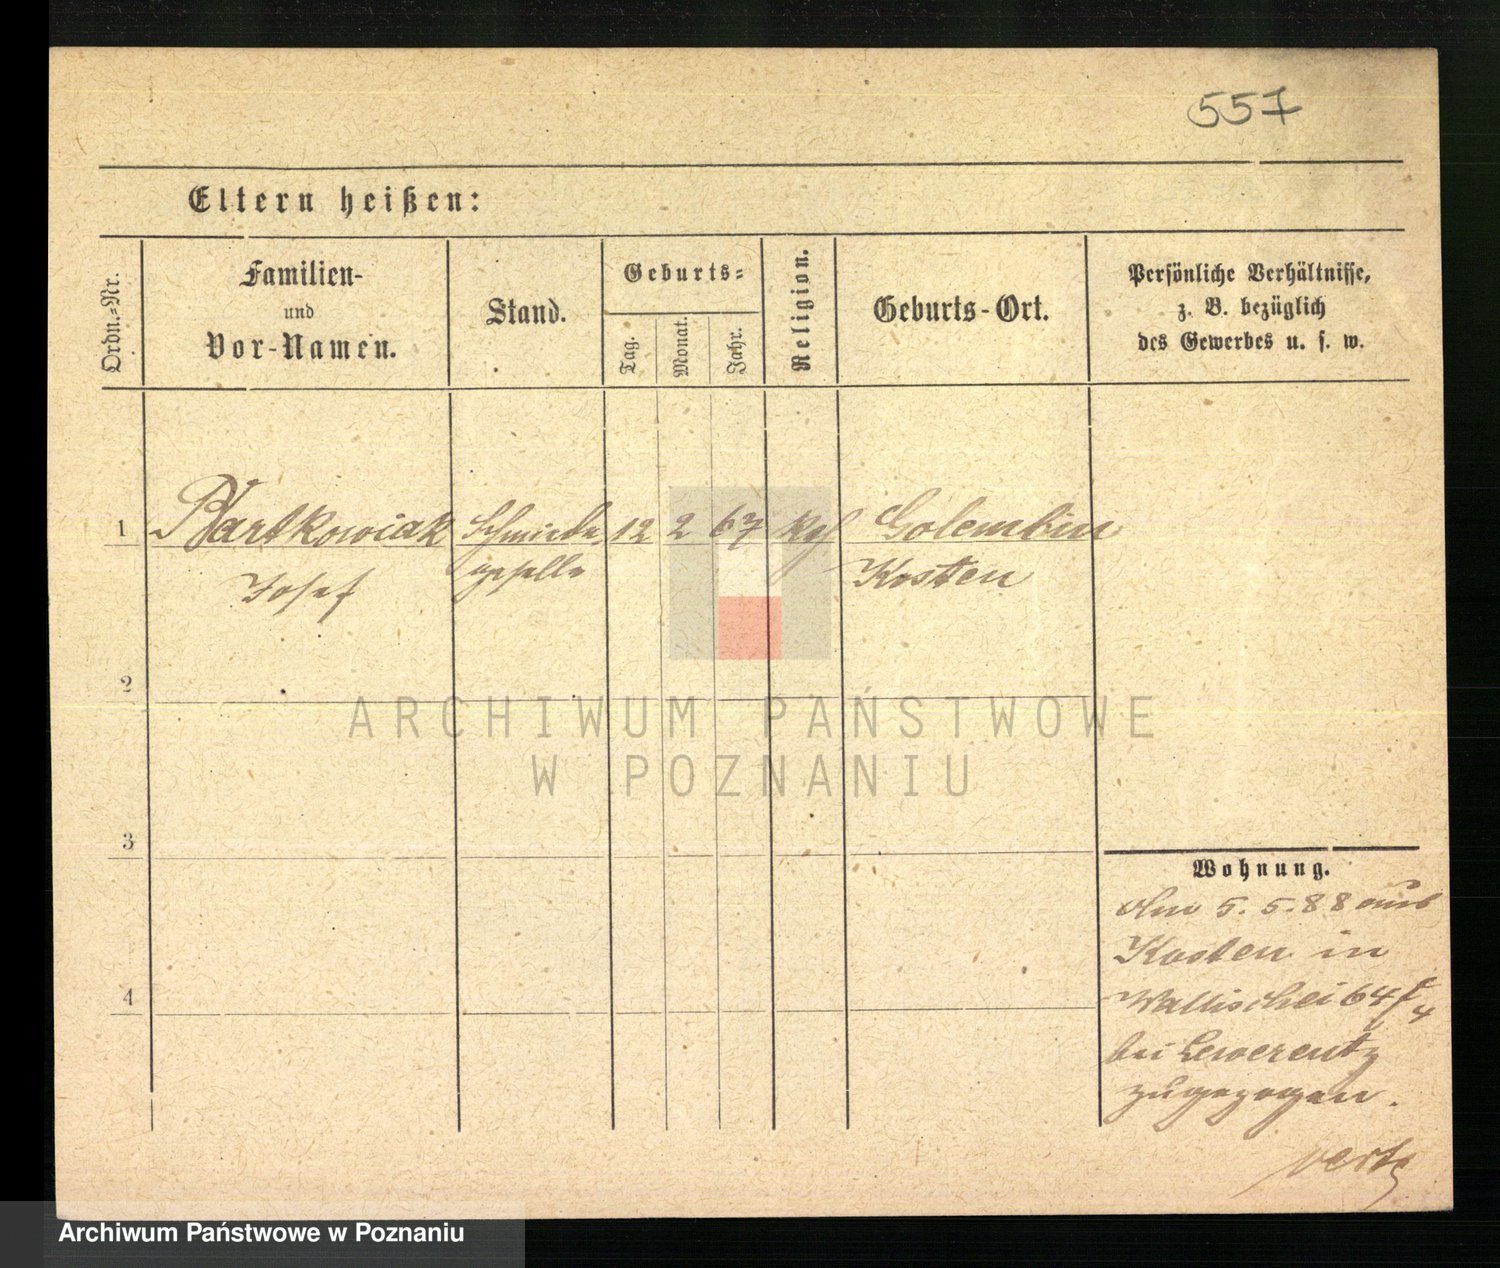 557
Eltern heißen:
Ordn.-Nr.
Familien-
und
Vor-Namen.
Stand.
Geburts-
Tag.
Monat.
Jahr.
Religion.
Geburts-Ort.
Persönliche Verhältnisse,
z. B. bezüglich
des Gewerbes u. s. w.
1 Bartkowiak Schmiede 12 2 67 Kgl Golembin
Josef geselle Kosten
2
3
4
Wohnung.
Am 5. 5. 88 aus
Kosten in
Wallischei 64
bei Lewerentz
zugezogen.
ARCHIWUM PAŃSTWOWE
W POZNANIU
Archiwum Państwowe w Poznaniu